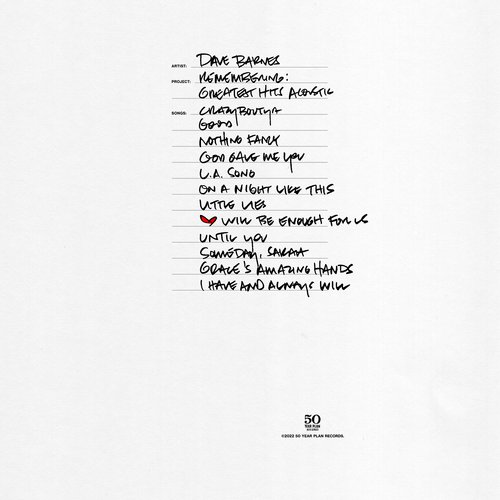 ARTIST: DAVE BARNES
PROJECT: REMEMBERING:
GREATEST HITS ACOUSTIC
SONGS: CRAZYBOUTYA
GOOD
NOTHING FANCY
GOD GAVE ME YOU
L.A. SONG
ON A NIGHT LIKE THIS
LITTLE LIES
WILL BE ENOUGH FOR US
UNTIL YOU
SOMEDAY, SARAH
GRACE'S AMAZING HANDS
I HAVE AND ALWAYS WILL
50
YEAR PLAN
RECORDS
©2022 50 YEAR PLAN RECORDS.